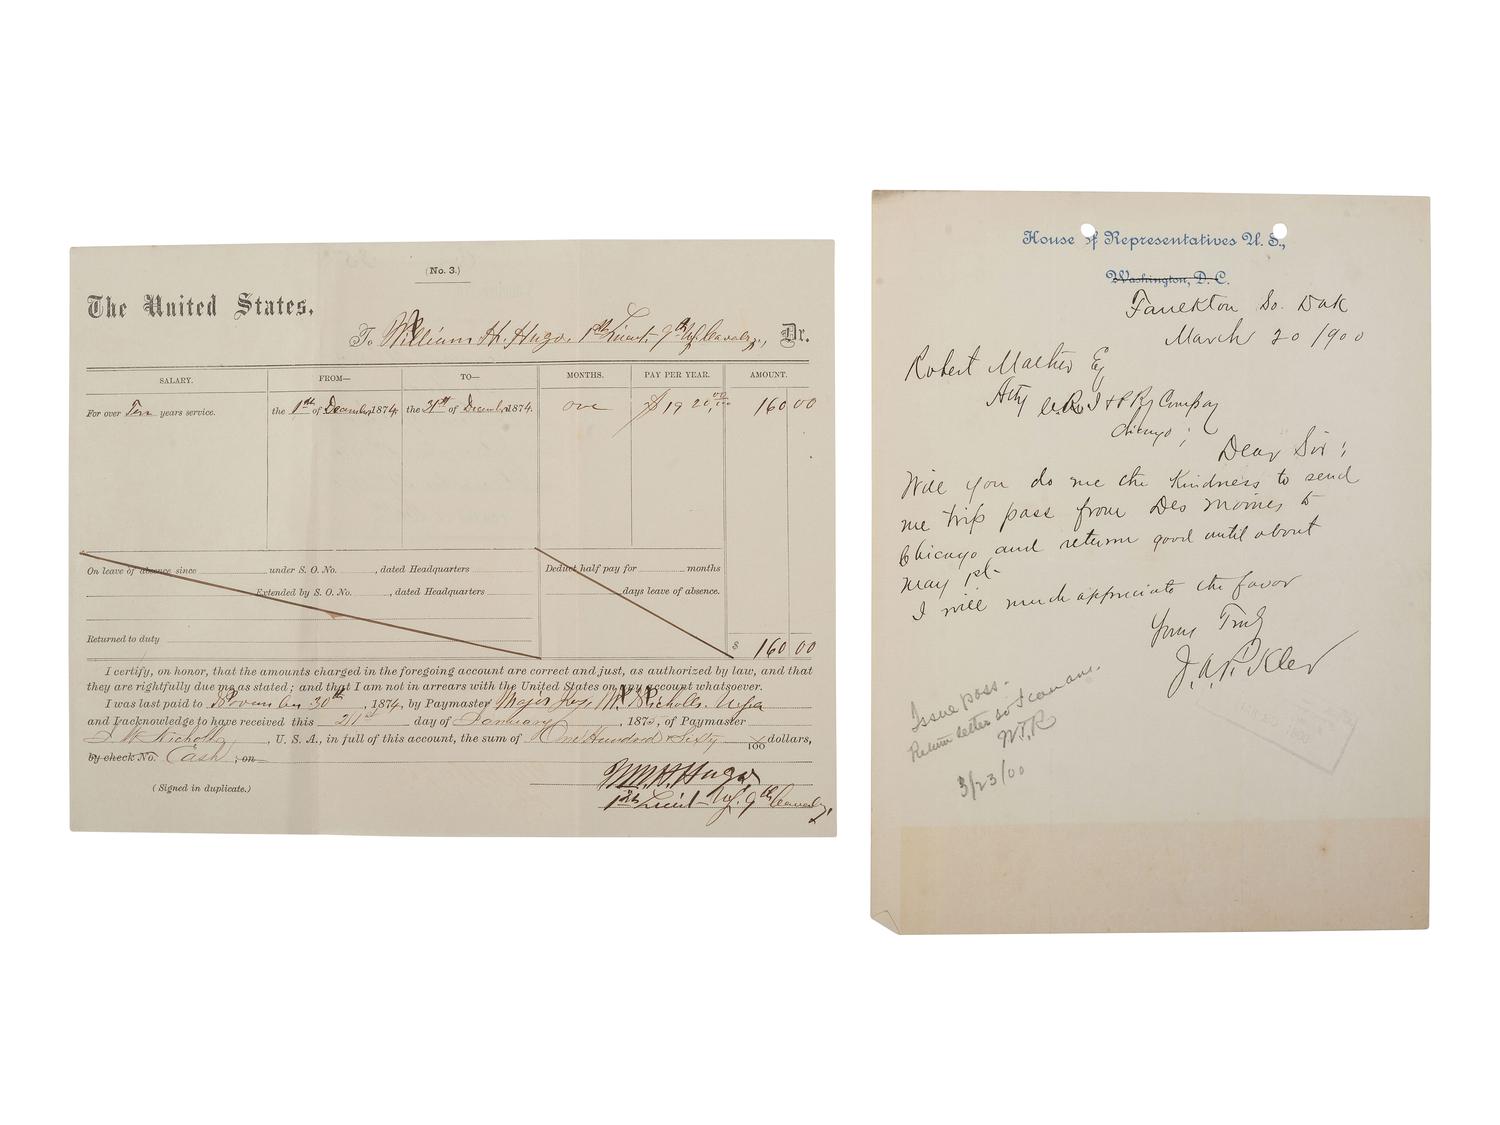 (No. 3.)
The United States,
To William H. Hugo, 1st Lieut. 9th U.S. Cavalry, Dr.
SALARY. FROM— TO— MONTHS. PAY PER YEAR. AMOUNT.
For over Ten years service. the 1st of December, 1874, the 31st of December 1874. one $1920.00 160 00
On leave of absence since under S. O. No. , dated Headquarters Deduct half pay for months
Extended by S. O. No. , dated Headquarters days leave of absence.
Returned to duty $ 160 00
I certify, on honor, that the amounts charged in the foregoing account are correct and just, as authorized by law, and that
they are rightfully due me as stated; and that I am not in arrears with the United States on any account whatsoever.
I was last paid to November 30th, 1874, by Paymaster Major Nicholls USA
and I acknowledge to have received this 21st day of January, 1875, of Paymaster
Nicholls, U. S. A., in full of this account, the sum of One Hundred & Sixty x/100 dollars,
by check No. Cash ; on
(Signed in duplicate.)
Wm. H. Hugo
1st Lieut. U.S. 9th Cavalry
House of Representatives U. S.,
Washington, D. C.
Faulkton So. Dak
March 20 1900
Robert Mather Esq
Atty C.R.I & P Ry Company
Chicago;
Dear Sir;
Will you do me the kindness to send
me trip pass from Des Moines to
Chicago and return good until about
May 1st.
I will much appreciate the favor
Yours Truly
J.A. Pickler
Issue pass.
Return letter so I can ans.
3/23/00